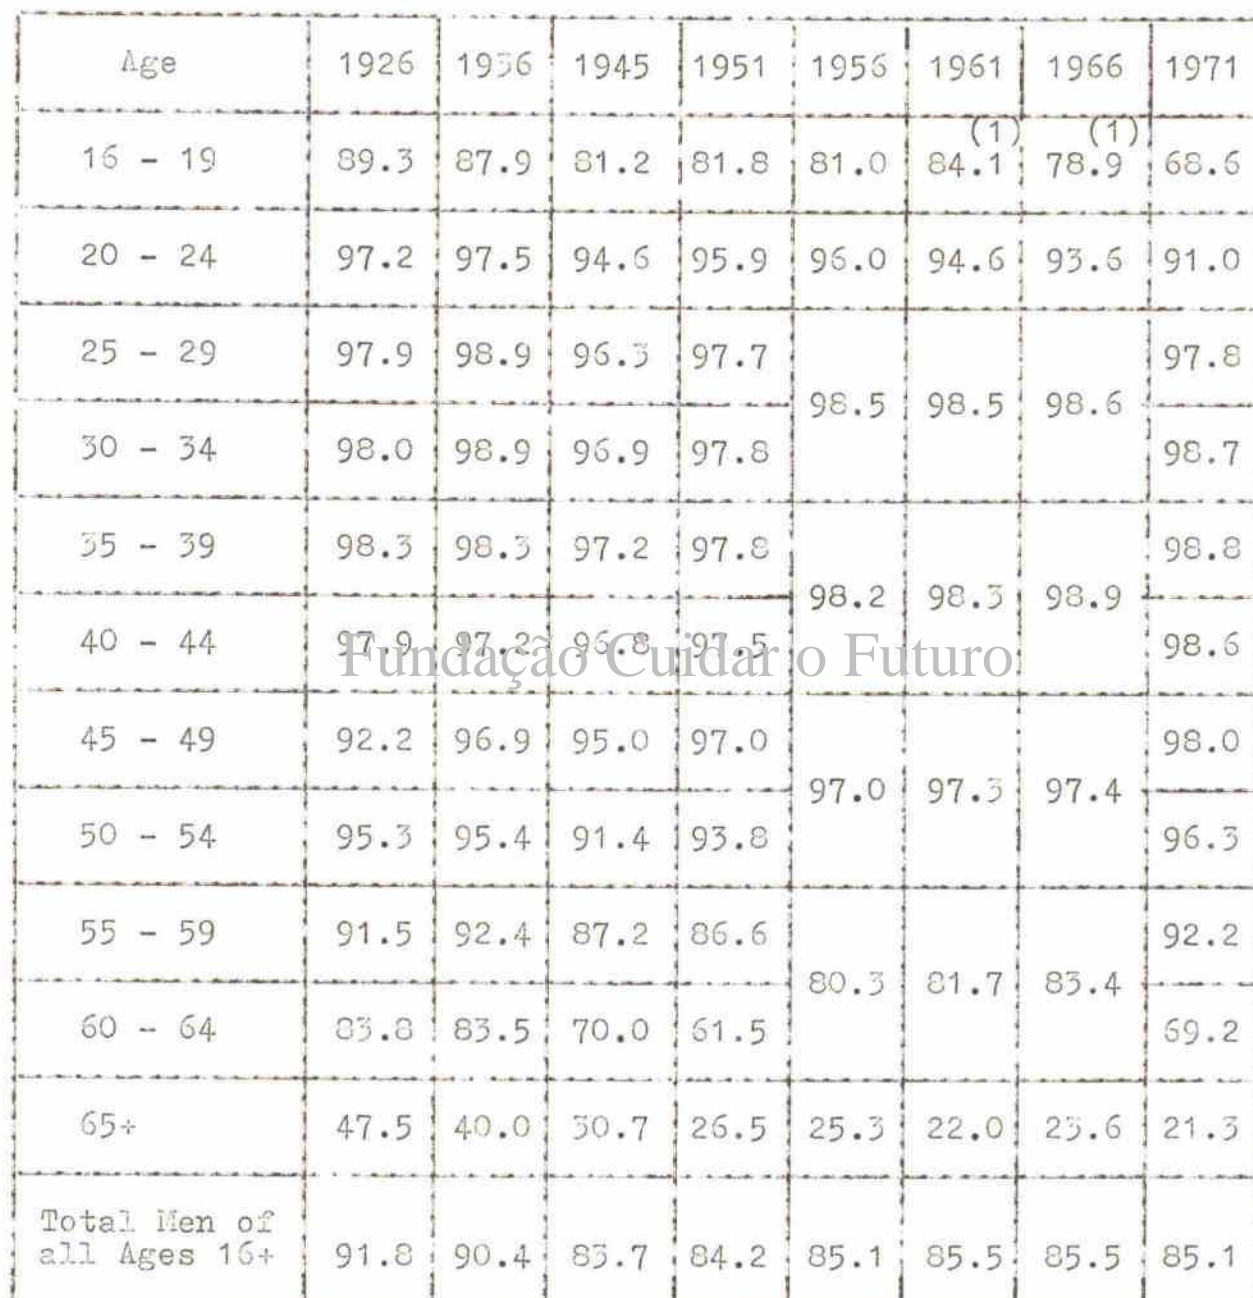 Age 1926 1936 1945 1951 1956 1961 1966 1971
(1) (1)
16 - 19 89.3 87.9 81.2 81.8 81.0 84.1 78.9 68.6
20 - 24 97.2 97.5 94.6 95.9 96.0 94.6 93.6 91.0
25 - 29 97.9 98.9 96.3 97.7 97.8
98.5 98.5 98.6
30 - 34 98.0 98.9 96.9 97.8 98.7
35 - 39 98.3 98.3 97.2 97.8 98.8
98.2 98.3 98.9
40 - 44 97.9 97.2 96.8 97.5 98.6
Fundação Cuidar o Futuro
45 - 49 92.2 96.9 95.0 97.0 98.0
97.0 97.3 97.4
50 - 54 95.3 95.4 91.4 93.8 96.3
55 - 59 91.5 92.4 87.2 86.6 92.2
80.3 81.7 83.4
60 - 64 83.8 83.5 70.0 61.5 69.2
65+ 47.5 40.0 30.7 26.5 25.3 22.0 23.6 21.3
Total Men of
all Ages 16+ 91.8 90.4 83.7 84.2 85.1 85.5 85.5 85.1